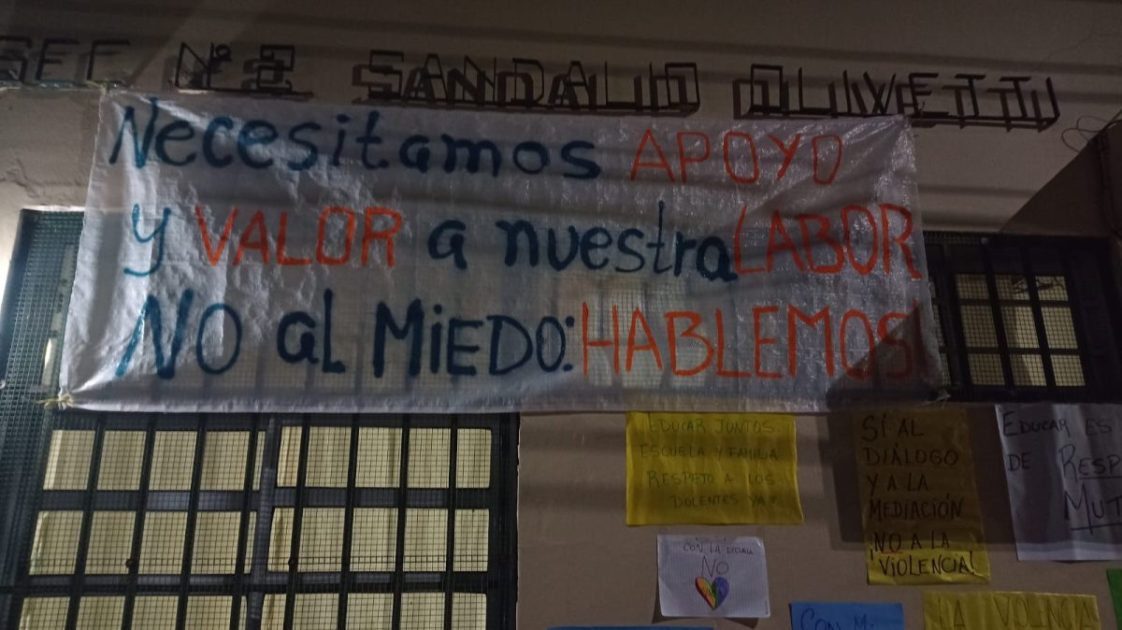 Nº 2 SANDALIO OLIVETTI
Necesitamos APOYO
y VALOR a nuestra LABOR
NO al MiEDO: HABLEMOS!
EDUCAR JUNTOS
ESCUELA Y FAMILIA
RESPETO A LOS
DOCENTES YA
SÍ AL
DIÁLOGO
Y A LA
MEDIACIÓN
¡NO A LA
VIOLENCIA!
EDUCAR ES
DE RESP
MUT
CON LA
NO
CON Mi